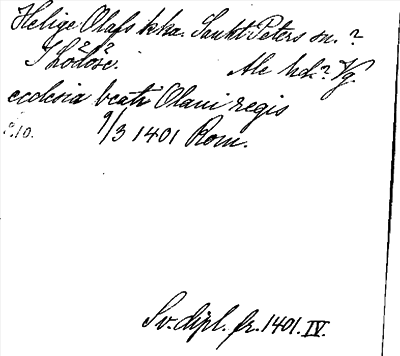 Helige Olafs kka. Sankt Peters sn. ?
Ale hd. ? Vg.
ecclesia beati Olaui regis
9/3 1401 Rom.
Sv. dipl. fr. 1401. IV.